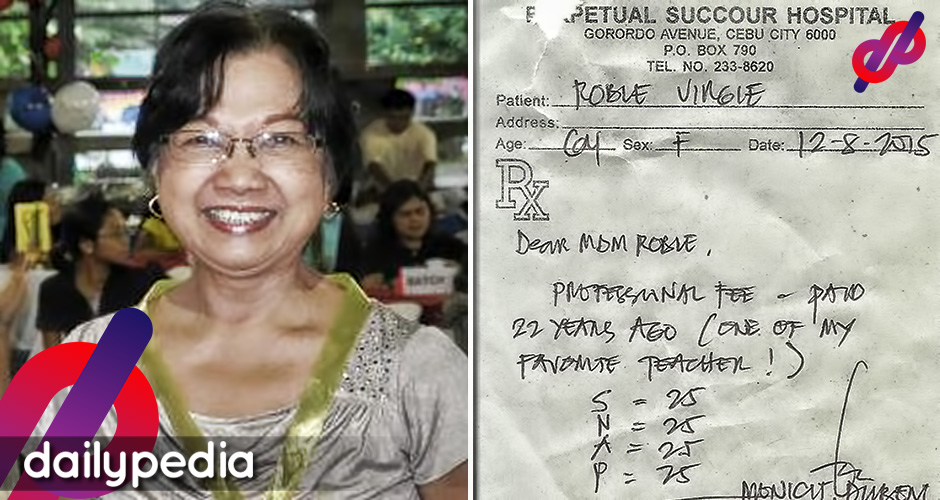 dailypedia
BATCH
PERPETUAL SUCCOUR HOSPITAL
GORORDO AVENUE, CEBU CITY 6000
P.O. BOX 790
TEL. NO. 233-8620
Patient: ROBLE VIRGIE
Address:
Age: 64 Sex: F Date: 12-8-2015
Rx
Dear MDM ROBLE,
PROFESSIONAL FEE - PAID
22 YEARS AGO (ONE OF MY
FAVORITE TEACHER!)
S = 25
N = 25
A = 25
P = 25